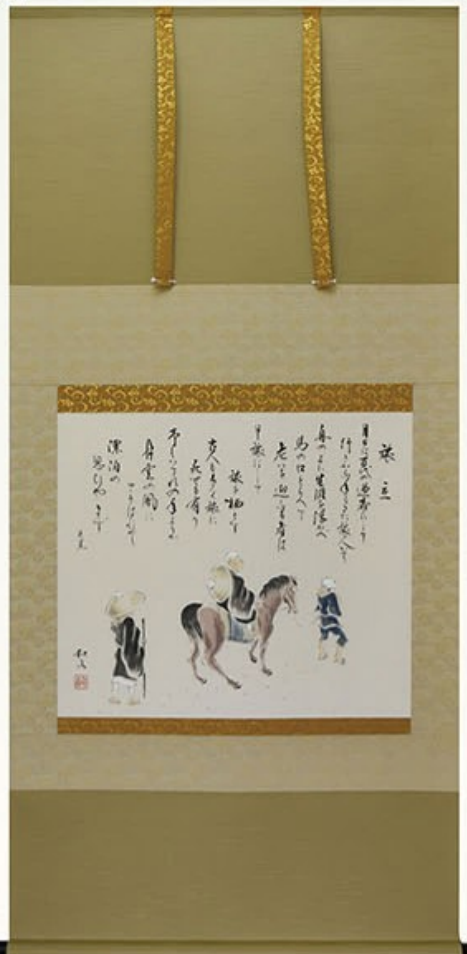 旅立
月日は百代の過客にして
行かふ年も又旅人也
舟の上に生涯を浮へ
馬の口とらへて
老を迎ふる者は
日々旅にして
旅を栖とす
古人も多く旅に
死せる有り
予もいつれの年よりか
片雲の風に
さそはれて
漂泊の
思ひやます